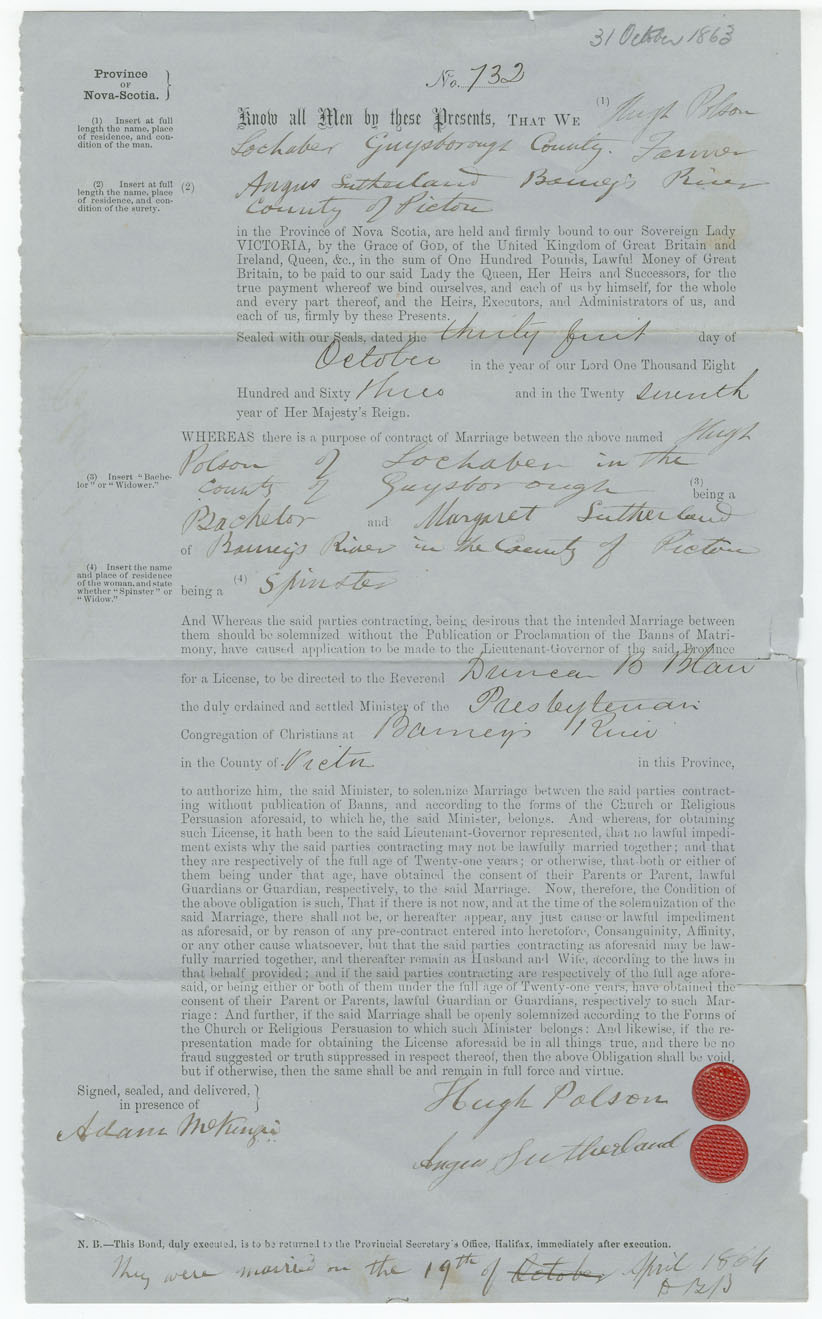 31 October 1863
Province
OF
Nova-Scotia.
No. 732
(1) Insert at full
length the name, place
of residence, and con-
dition of the man.
Know all Men by these Presents, THAT WE (1) Hugh Polson
Lochaber Guysborough County. Farmer
(2) Insert at full
length the name, place
of residence, and con-
dition of the surety.
(2) Angus Sutherland Barney's River
County of Pictou
in the Province of Nova Scotia, are held and firmly bound to our Sovereign Lady
VICTORIA, by the Grace of GOD, of the United Kingdom of Great Britain and
Ireland, Queen, &c., in the sum of One Hundred Pounds, Lawful Money of Great
Britain, to be paid to our said Lady the Queen, Her Heirs and Successors, for the
true payment whereof we bind ourselves, and each of us by himself, for the whole
and every part thereof, and the Heirs, Executors, and Administrators of us, and
each of us, firmly by these Presents.
Sealed with our Seals, dated the thirty first day of
October in the year of our Lord One Thousand Eight
Hundred and Sixty three and in the Twenty seventh
year of Her Majesty's Reign.
WHEREAS there is a purpose of contract of Marriage between the above named Hugh
Polson of Lochaber in the
(3) Insert "Bache-
lor" or "Widower."
County of Guysborough (3) being a
Bachelor and Margaret Sutherland
of Barney's River in the County of Pictou
(4) Insert the name
and place of residence
of the woman, and state
whether "Spinster" or
"Widow."
being a (4) Spinster
And Whereas the said parties contracting, being desirous that the intended Marriage between
them should be solemnized without the Publication or Proclamation of the Banns of Matri-
mony, have caused application to be made to the Lieutenant-Governor of the said Province
for a License, to be directed to the Reverend Duncan B Blair
the duly ordained and settled Minister of the Presbyterian
Congregation of Christians at Barney's River
in the County of Pictou in this Province,
to authorize him, the said Minister, to solemnize Marriage between the said parties contract-
ing without publication of Banns, and according to the forms of the Church or Religious
Persuasion aforesaid, to which he, the said Minister, belongs. And whereas, for obtaining
such License, it hath been to the said Lieutenant-Governor represented, that no lawful impedi-
ment exists why the said parties contracting may not be lawfully married together; and that
they are respectively of the full age of Twenty-one years; or otherwise, that both or either of
them being under that age, have obtained the consent of their Parents or Parent, lawful
Guardians or Guardian, respectively, to the said Marriage. Now, therefore, the Condition of
the above obligation is such, That if there is not now, and at the time of the solemnization of the
said Marriage, there shall not be, or hereafter appear, any just cause or lawful impediment
as aforesaid, or by reason of any pre-contract entered into heretofore, Consanguinity, Affinity,
or any other cause whatsoever, but that the said parties contracting as aforesaid may be law-
fully married together, and thereafter remain as Husband and Wife, according to the laws in
that behalf provided; and if the said parties contracting are respectively of the full age afore-
said, or being either or both of them under the full age of Twenty-one years, have obtained the
consent of their Parent or Parents, lawful Guardian or Guardians, respectively to such Mar-
riage: And further, if the said Marriage shall be openly solemnized according to the Forms of
the Church or Religious Persuasion to which such Minister belongs: And likewise, if the re-
presentation made for obtaining the License aforesaid be in all things true, and there be no
fraud suggested or truth suppressed in respect thereof, then the above Obligation shall be void,
but if otherwise, then the same shall be and remain in full force and virtue.
Signed, sealed, and delivered,
in presence of
Adam McKenzie
Hugh Polson
Angus Sutherland
N. B.—This Bond, duly executed, is to be returned to the Provincial Secretary's Office, Halifax, immediately after execution.
They were married on the 19th of October April 1864
D B B